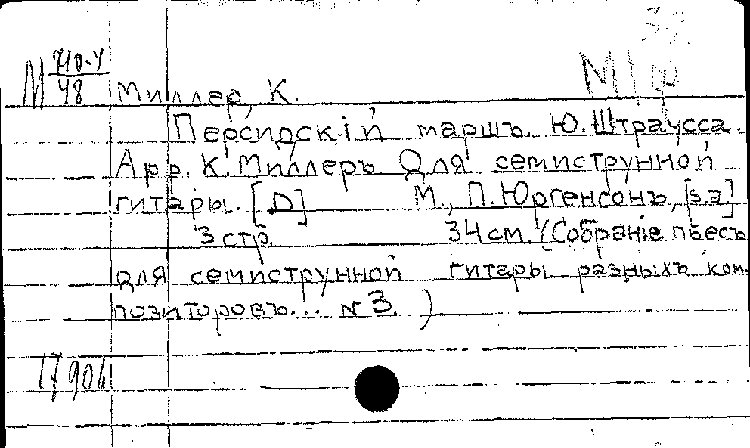 М 710-4/48
Миллер, К.
Персидскій маршъ. Ю. Штраусса.
Арр. К. Миллеръ Для семиструнной
гитары. [D] М., П. Юргенсонъ, [s.a]
3 стр. 34 см. (Собраніе пьесъ
для семиструнной гитары разныхъ ком-
позиторовъ... № 3.)